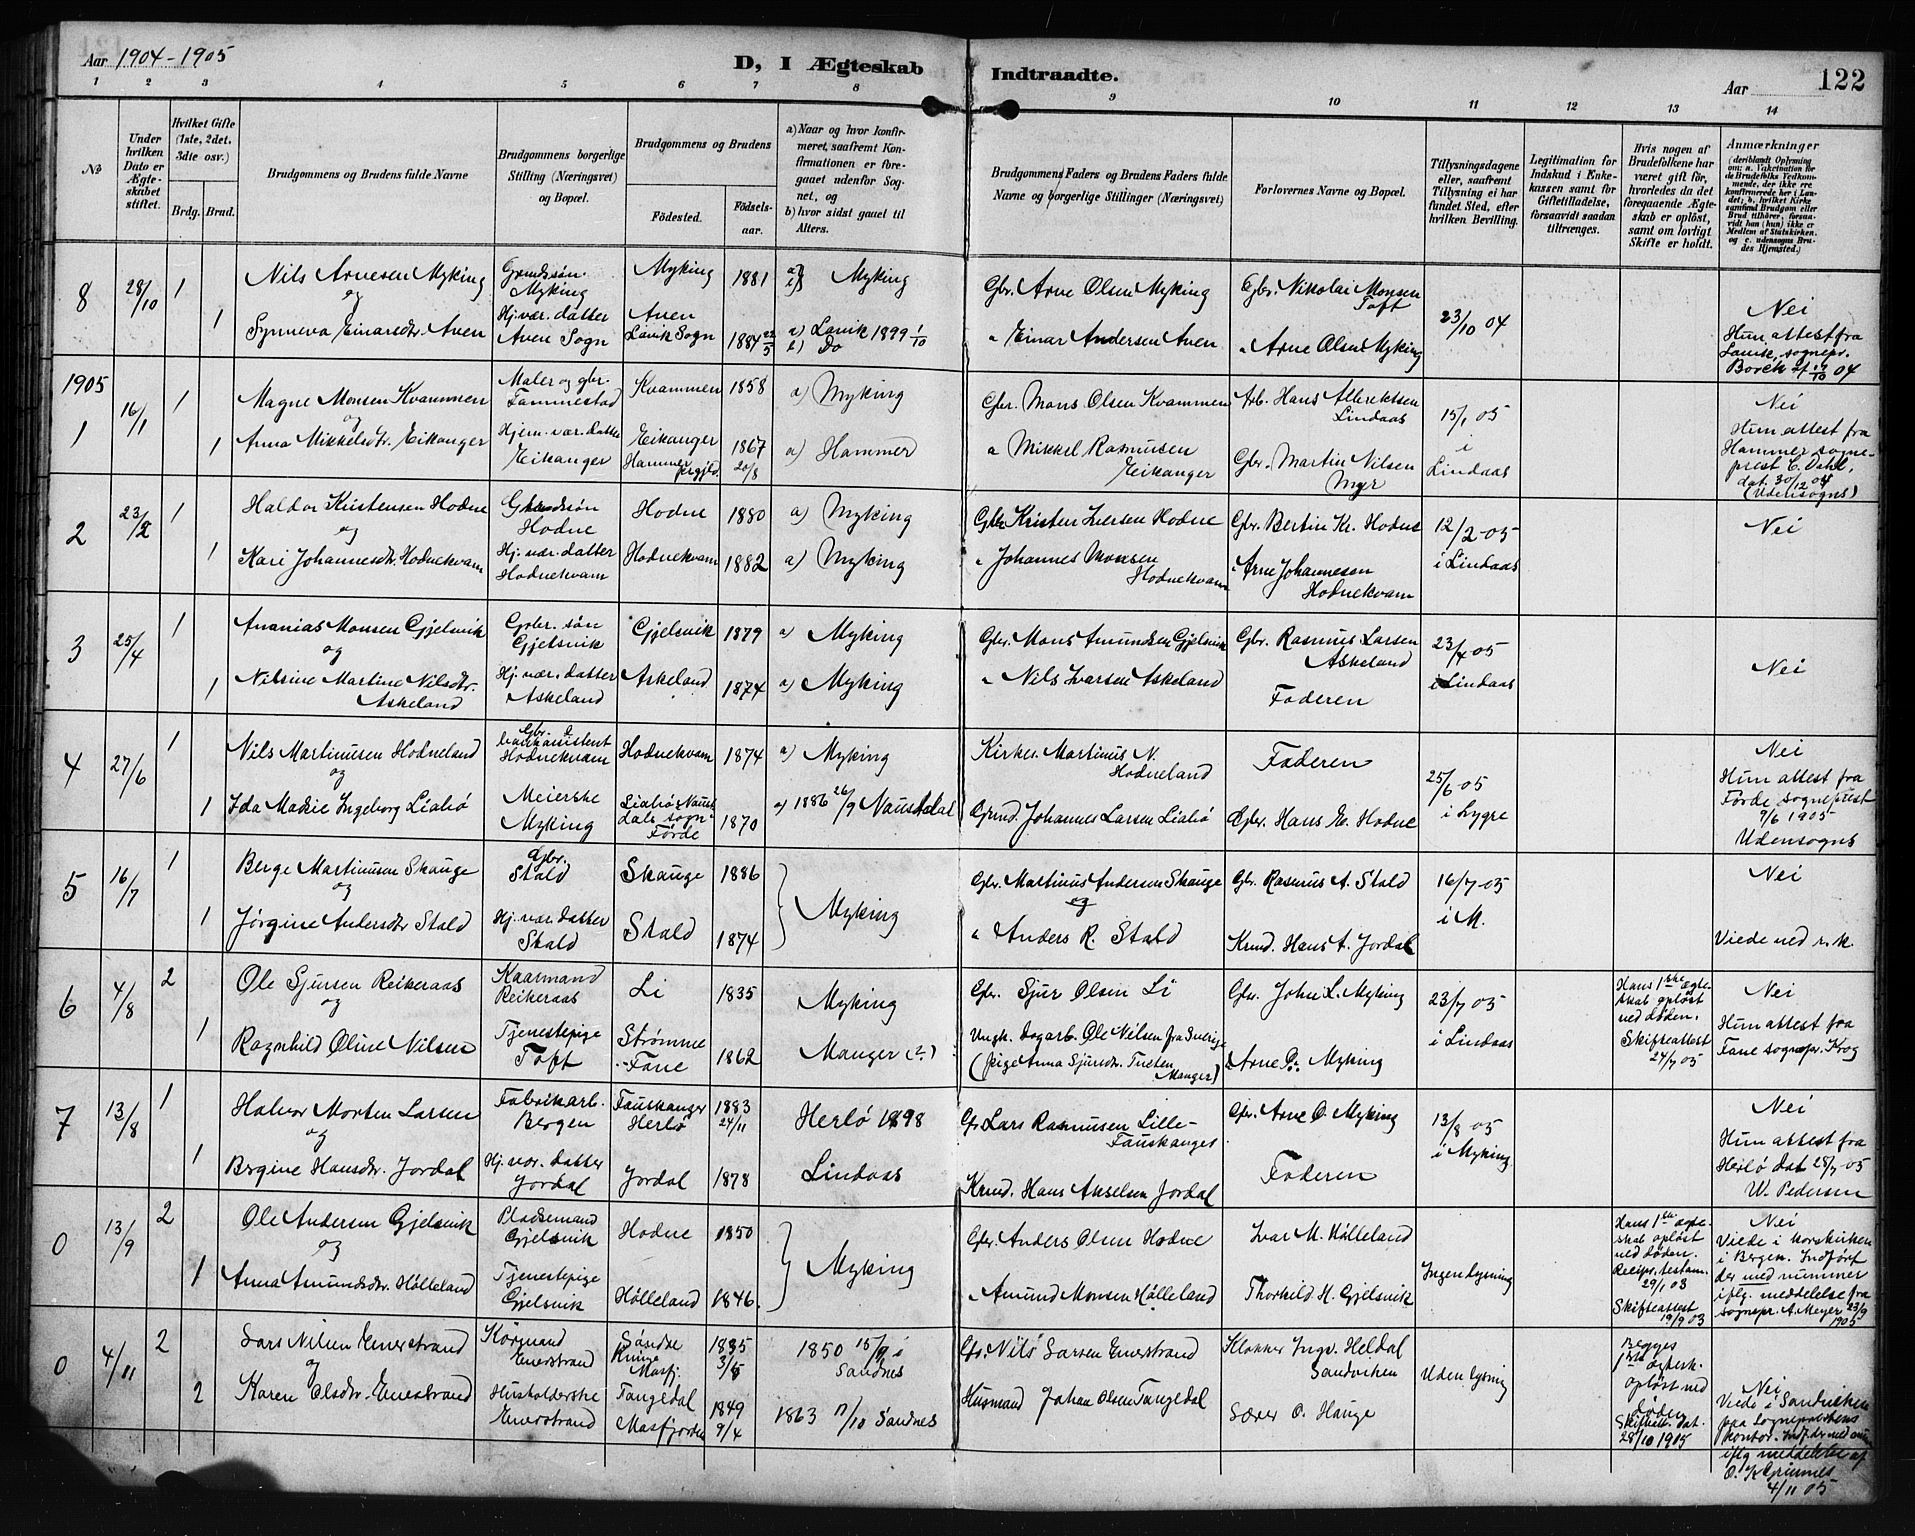 Aar 1904-1905
D, I Ægteskab Indtraadte.
Aar 122
1 2 3 4 5 6 7 8 9 10 11 12 13 14
No
Under hvilken Dato er Ægteskabet stiftet.
Hvilket Gifte (1ste, 2det, 3dte osv.)
Brdg. Brud.
Brudgommens og Brudens fulde Navne
Brudgommens borgerlige Stilling (Næringsvei) og Bopæl.
Brudgommens og Brudens
Födested. Födselsaar.
a) Naar og hvor konfirmeret, saafremt Konfirmationen er foregaaet udenfor Sognet, og
b) hvor sidst gaaet til Alters.
Brudgommens Faders og Brudens Faders fulde Navne og borgerlige Stillinger (Næringsvei)
Forlovernes Navne og Bopæl.
Tillysningsdagene eller, saafremt Tillysning ei har fundet Sted, efter hvilken Bevilling.
Legitimation for Indskud i Enkekassen samt for Giftetilladelse, forsaavidt saadan tiltrænges.
Hvis nogen af Brudefolkene har været gift för, hvorledes da det foregaaende Ægteskab er oplöst, samt om lovligt Skifte er holdt.
Anmærkninger
8 28/10 1 Nils Arnesen Myking Myking 1881 Myking Gbr. Arne Olsen Myking Gbr. Nikolai Monsen Toft 23/10 04 Nei
og
1 Synneva Einarsdtr. Aven Hj. vær. datter Aven Sogn Aven Lavik Sogn 1884 22/5 a) Lavik 1899 1/10 b) Do " Einar Andersen Aven " Arne Olsen Myking Hun attest fra Lavik, sognepr. Borch af 17/10 04
1905
1 16/1 1 Magne Monsen Kvammen Maler og gbr. Fammestad Kvammen 1858 a) Myking Gbr. Mons Olsen Kvammen Arb. Hans Albrektsen Lindaas 15/1 05 i Lindaas Nei
og
1 Anna Mikkelsdtr. Eikanger Hjem. vær. datter Eikanger Eikanger Hammer prgjld. 1867 20/8 a) Hammer " Mikkel Rasmusen Eikanger Gbr. Martin Nilsen Myr Hun attest fra Hammer sogneprest C. Dahl, dat. 30/12 04 (Udensogns)
2 23/2 1 Haldor Kristensen Hodne Hodne Hodne 1880 a) Myking Gbr. Kristen Iversen Hodne Gbr. Bertin Kr. Hodne 12/2-05 i Lindaas Nei
og
1 Kari Johannesdtr. Hodnekvam Hj. vær. datter Hodnekvam Hodnekvam 1882 a) Myking " Johannes Monsen Hodnekvam " Arne Johannesen Hodnekvam
3 25/4 1 Ananias Monsen Gjelsvik Gbr. søn Gjelsvik Gjelsvik 1879 a) Myking Gbr. Mons Amundsen Gjelsvik Gbr. Rasmus Larsen Askeland 23/4 05 i Lindaas Nei
og
1 Nilsine Martine Nilsdtr. Askeland Hj. vær. datter Askeland Askeland 1874 a) Myking " Nils Ivarsen Askeland Faderen
4 27/6 1 Nils Martinusen Hodneland Gbr. Hodnekvam Hodnekvam 1874 a) Myking Kirkes. Martinus N. Hodneland Faderen 25/6 05 i Lygre Nei
og
1 Ida Marie Ingeborg Liabö Meierske Myking Liabö Naustdals sogn Förde 1870 a) 1886 26/9 Naustdal Grmd. Johannes Larsen Liabö Gbr. Hans E. Hodne Hun attest fra Förde sogneprest 9/6 1905 Udensogns
5 16/7 1 Berge Martinusen Skauge Gbr. Stald Skauge 1886 Myking Gbr. Martinus Andersen Skauge Gbr. Rasmus A. Stald 16/7-05 i M. Nei
og
1 Jørgine Andersdtr. Stald Hj. vær. datter Stald Stald 1874 " Anders R. Stald Krmd. Hans A. Jordal Viede ved r. k.
6 4/8 2 Ole Sjursen Reikeraas Kaarmand Reikeraas Li 1835 Myking Gbr. Sjur Olsen Li Gbr. John L. Myking 23/7 05 i Lindaas Hans 1ste ægteskab opløst ved døden. Skifteattest 24/7 05 Nei
og
1 Ragnhild Oline Nilsen Tjenestepige Toft Strømme Fane 1862 Manger (?) Ungk. dagarb. Ole Nilsen fra Sverige (pige Anna Sjursdtr. Tveten Manger) Arne O. Myking Hun attest fra Fane sognepr. Krog
7 13/8 1 Halvor Morten Larsen Fabrikarb. Bergen Fauskanger Herlö 1883 24/11 Herlö 1898 Gbr. Lars Rasmusen Lille-Fauskanger Gbr. Arne O. Myking 13/8 05 i Myking Nei
og
1 Bergine Hansdtr. Jordal Hj. vær. datter Jordal Jordal 1878 Lindaas Krmd. Hans Akselsen Jordal Faderen Hun attest fra Herlö dat 28/7 05 W. Pedersen
0 13/9 2 Ole Andersen Gjelsvik Pladsemand Gjelsvik Hodne 1850 Myking Gbr. Anders Olsen Hodne Ivar M. Hölleland Ingen lysning Hans 1ste ægteskab opløst ved døden. Recipr. testam. 29/1 03 Skifteattest 19/9 03 Nei
og
1 Anna Amundsdtr. Hölleland Tjenestepige Gjelsvik Hölleland 1846 " Amund Monsen Hölleland Thorkild H. Gjelsvik Viede i Korskirken i Bergen. Indført der med nummer iflg. meddelelse fra sognepr. A. Meyer 23/9 1905
0 4/11 2 Lars Nilsen Enerstrand Enerstrand Masfj. 1835 3/5 1850 15/9 i Sandnes Gbr. Nils Larsen Enerstrand Klokker Ingv. Heldal Sandviken Uden lysning Begges 1ste ægtesk. opløst ved døden Skifteatt. dat. 28/10 1905 Nei
og
2 Karen Olsdtr. Enerstrand Husholderske Enerstrand Tangedal Masfjorden 1849 9/4 1863 11/10 Sandnes Husmand Johan Olsen Tangedal Søren O. Hauge Viede i Sandviken paa Sogneprestens kontor. Indf. der med num iflg meddelelse af O. K. Grimnes 4/11 05